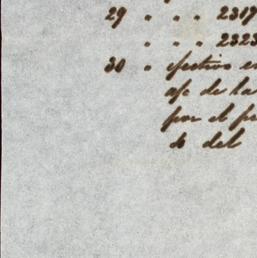 29 " " " 2317
" " " 2323
30 " efectivo en
a/c de la
por el pr
do del